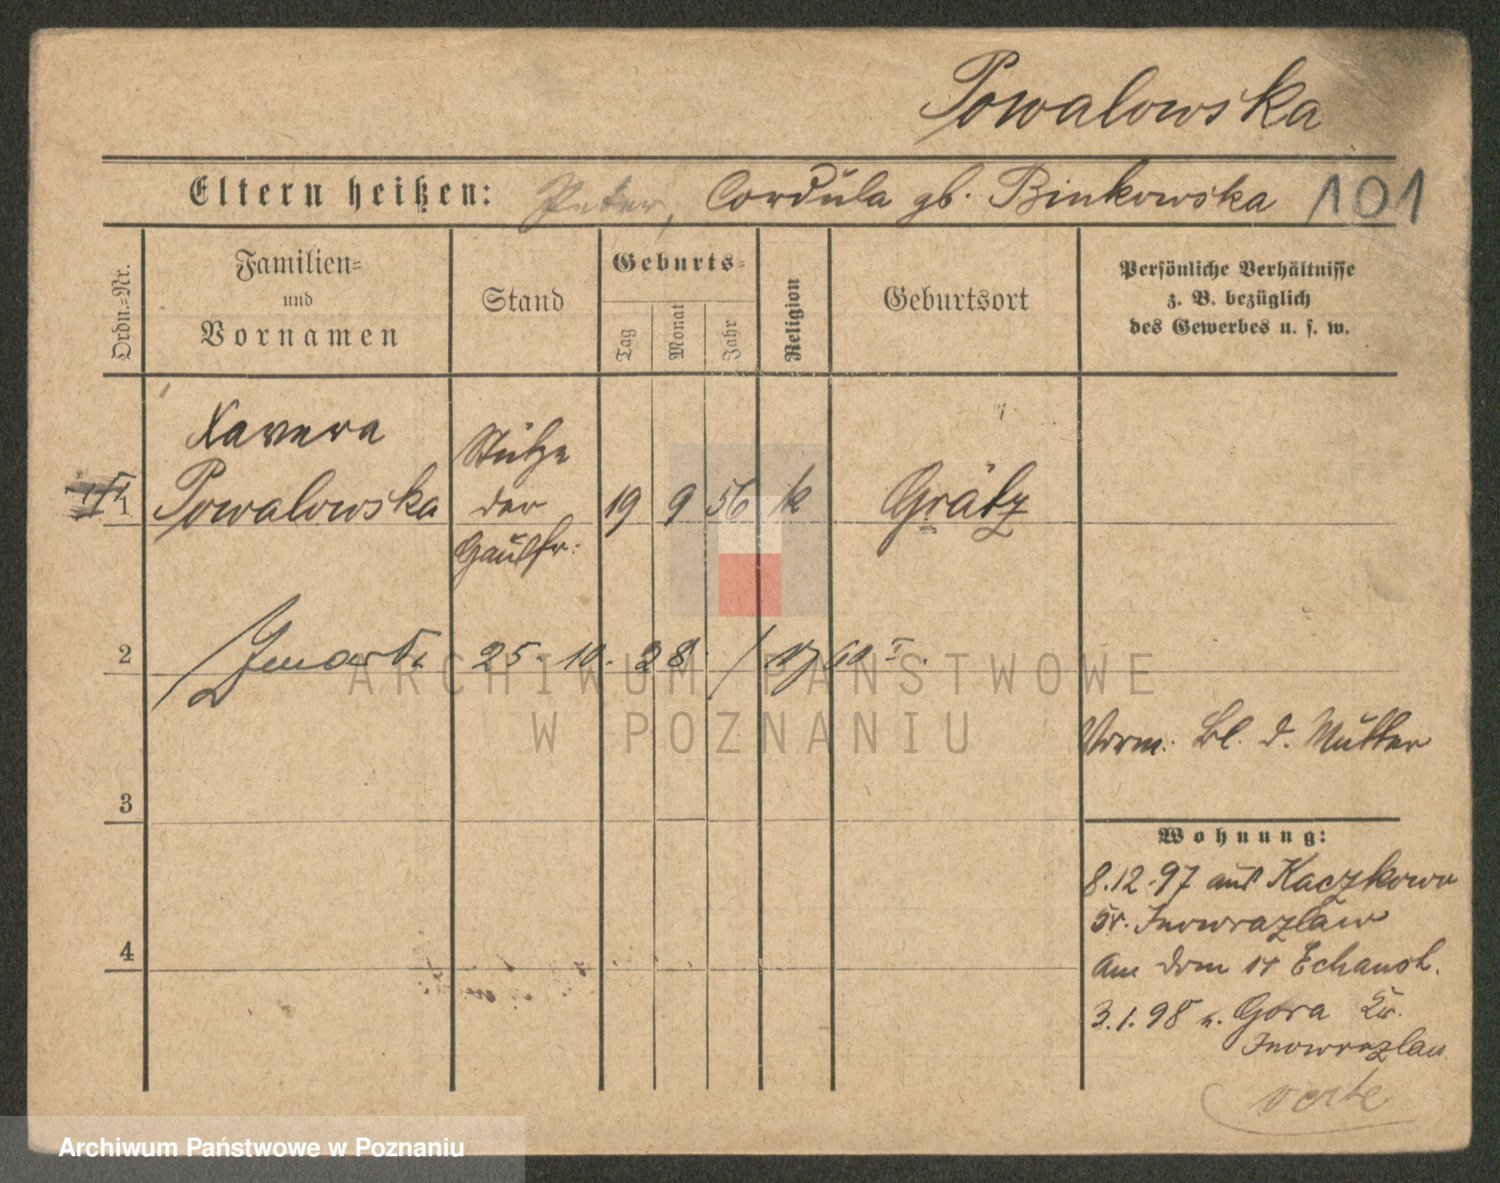 Powalowska
Eltern heißen: Peter, Cordula gb. Binkowska 101
Ordn.-Nr.
Familien-
und
Vornamen
Stand
Geburts-
Tag
Monat
Jahr
Religion
Geburtsort
Persönliche Verhältnisse
z. B. bezüglich
des Gewerbes u. s. w.
Xavera
1 Powalowska
Stütze
der
Hausfr.
19 9 56 k Grätz
2 25. 10. 28
3
Vorm. Bl. d. Mutter
Wohnung:
8.12.97 aus Kaczkowo
Kr. Inowrazlaw
Am Dom 11 Echaust.
3.1.98 n. Gora Kr.
Inowrazlaw
verte
4
ARCHIWUM PAŃSTWOWE
W POZNANIU
Archiwum Państwowe w Poznaniu